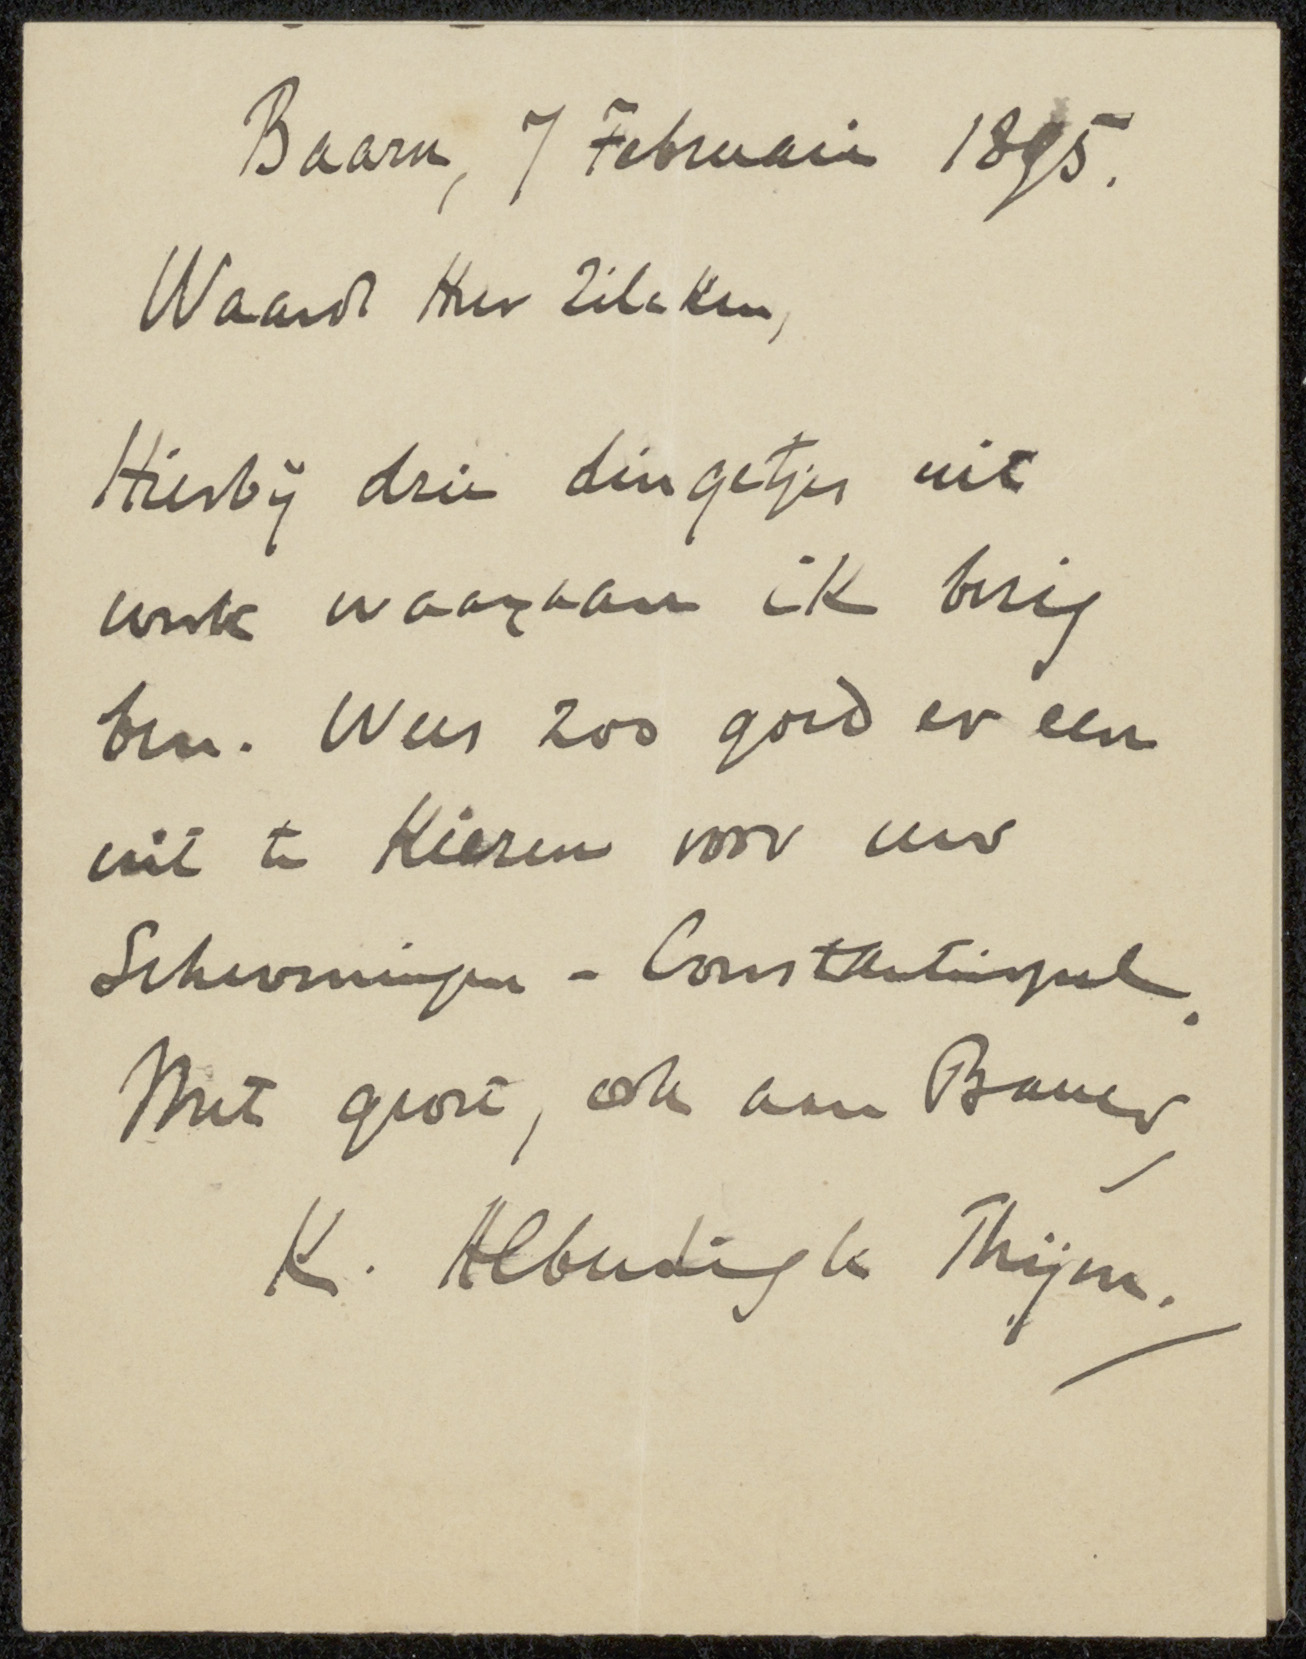 Baarn, 7 Februari 1895.
Waarde Heer Zilcken,
Hierbij drie dingetjes uit
werk waaraan ik bezig
ben. Wees zoo goed er een
uit te kiezen voor uw
Scheveningen - Constantinopel.
Met groet, ook aan Bauer,
K. Alberdingk Thijm.